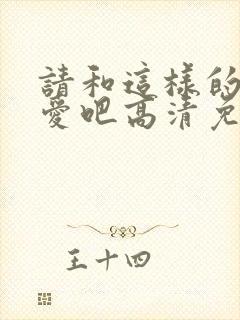 請和這樣的
愛吧高清免
王十四